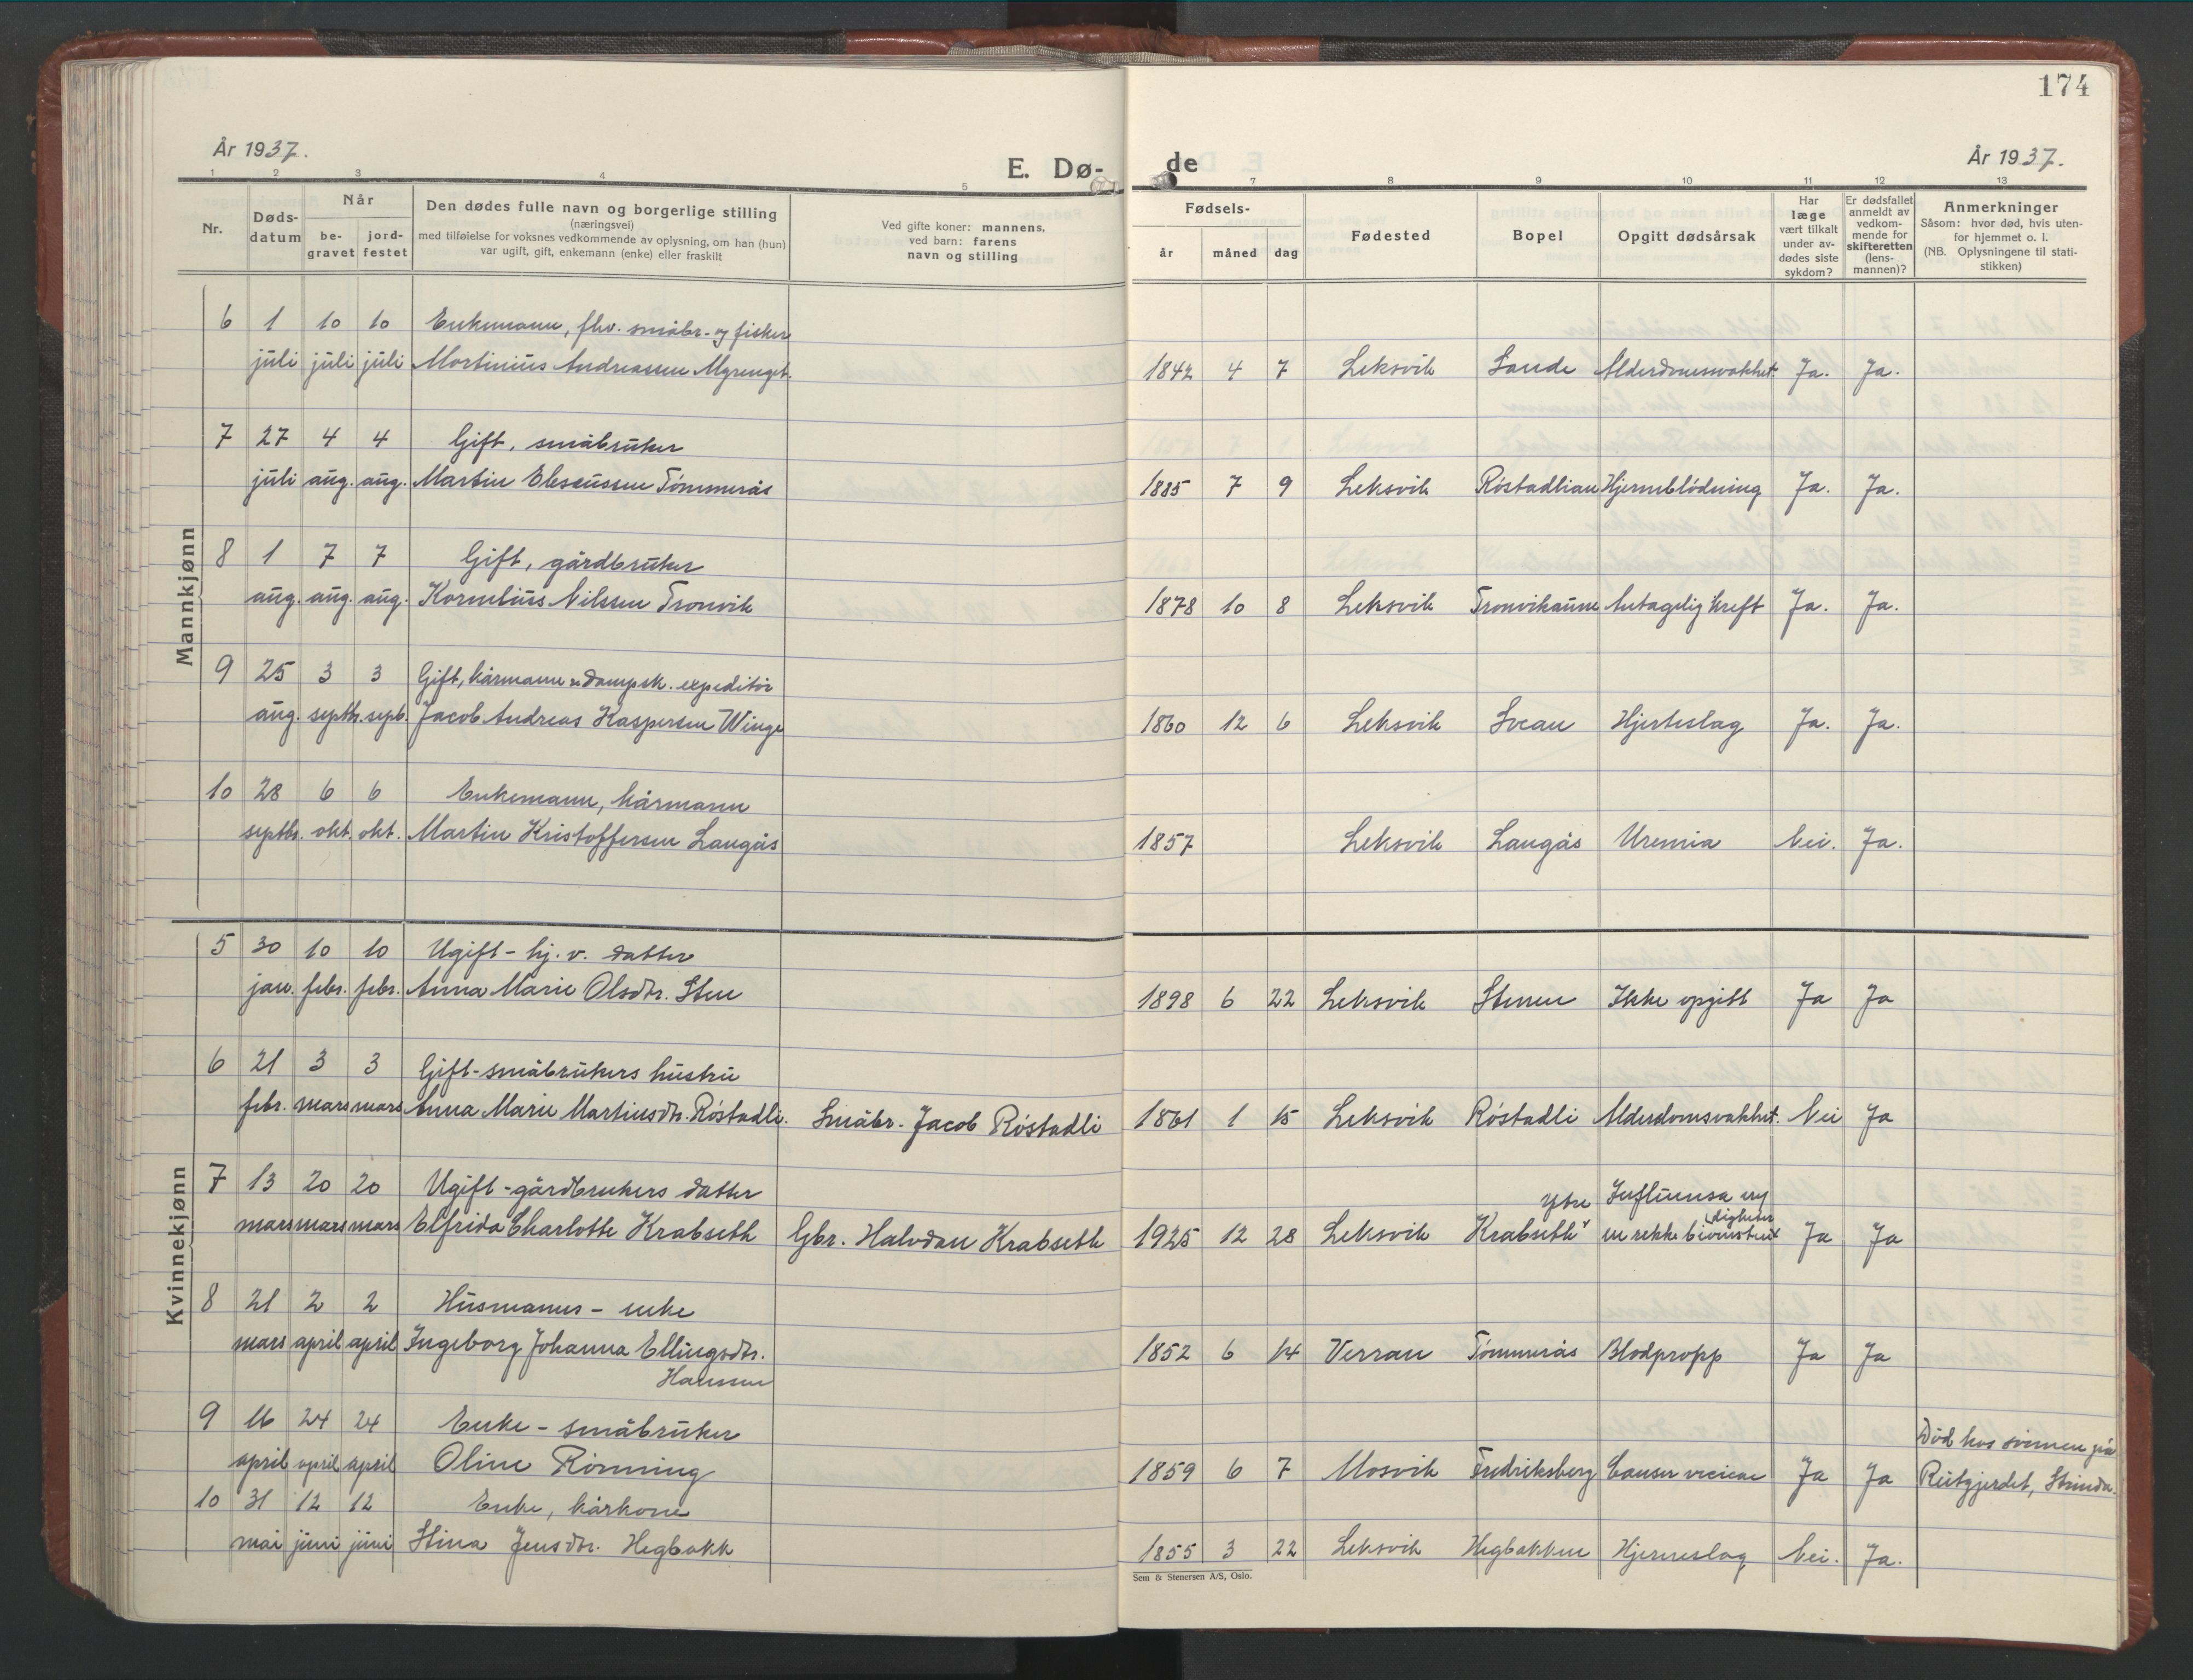 174
År 1937.
E. Dø-
de
År 1937.
1 2 3 4 5 7 8 9 10 11 12 13
Nr.
Døds-
datum
Når
be-
gravet
jord-
festet
Den dødes fulle navn og borgerlige stilling
(næringsvei)
med tilføielse for voksnes vedkommende av oplysning, om han (hun)
var ugift, gift, enkemann (enke) eller fraskilt
Ved gifte koner: mannens,
ved barn: farens
navn og stilling
Fødsels-
år måned dag
Fødested
Bopel
Opgitt dødsårsak
Har
læge
vært tilkalt
under av-
dødes siste
sykdom?
Er dødsfallet
anmeldt av
vedkom-
mende for
skifteretten
(lens-
mannen)?
Anmerkninger
Såsom: hvor død, hvis uten-
for hjemmet o. l.
(NB. Oplysningene til stati-
stikken)
Mannkjønn
6 1 10 10 Enkemann, fhv. småbr- og fisker
juli juli juli Martinius Andreassen Myrenget. 1842 4 7 Leksvik Sande Alderdomssvakhet. Ja. Ja.
7 27 4 4 Gift, småbruker
juli aug. aug. Martin Eleseussen Tømmerås 1885 7 9 Leksvik Røstadlian Hjerneblødning Ja. Ja.
8 1 7 7 Gift, gårdbruker
aug. aug. aug. Kornelius Nilssen Tronvik 1878 10 8 Leksvik Tronvikaune Antagelig kreft Ja. Ja.
9 25 3 3 Gift, kårmann og dampsk. expeditør
aug. septb. septb. Jacob Andreas Kaspersen Winge 1860 12 6 Leksvik Svean Hjerteslag Ja. Ja.
10 28 6 6 Enkemann, kårmann
septbr. okt. okt. Martin Kristoffersen Langås 1857 Leksvik Langås Uremia Nei. Ja.
Kvinnekjønn
5 30 10 10 Ugift - hj. v. datter
jan. febr. febr. Anna Marie Olsdtr. Sten 1898 6 22 Leksvik Stenen Ikke opgitt Ja Ja
6 21 3 3 Gift-småbrukers hustru
febr. mars mars Anna Marie Martinusdtr. Røstadli. Småbr. Jacob Røstadli 1861 1 15 Leksvik Røstadli Alderdomsvakhet. Nei Ja
7 13 20 20 Ugift - gårdbrukers datter Ytre Influensa og
digheter
mars mars mars Elfrida Charlotte Krabseth Gbr. Halvdan Krabseth 1925 12 28 Leksvik Krabseth en rekke Ja Ja
8 21 2 2 Husmanns - enke
mars april april Ingeborg Johanna Ellingsdtr. 1852 6 14 Verran Tømmerås Blodpropp Ja Ja
Hanssen
9 16 24 24 Enke - småbruker Død hos sønnen på
april april april Oline Rønning 1859 6 7 Mosvik Fredriksberg Cancer Ja Ja Reitgjerdet, Strinda.
10 31 12 12 Enke, kårkone
mai juni juni Stina Jensdtr. Hegbakk 1855 3 22 Leksvik Hegbakken Hjerneslag Nei. Ja.
Sem & Stenersen A/S, Oslo.